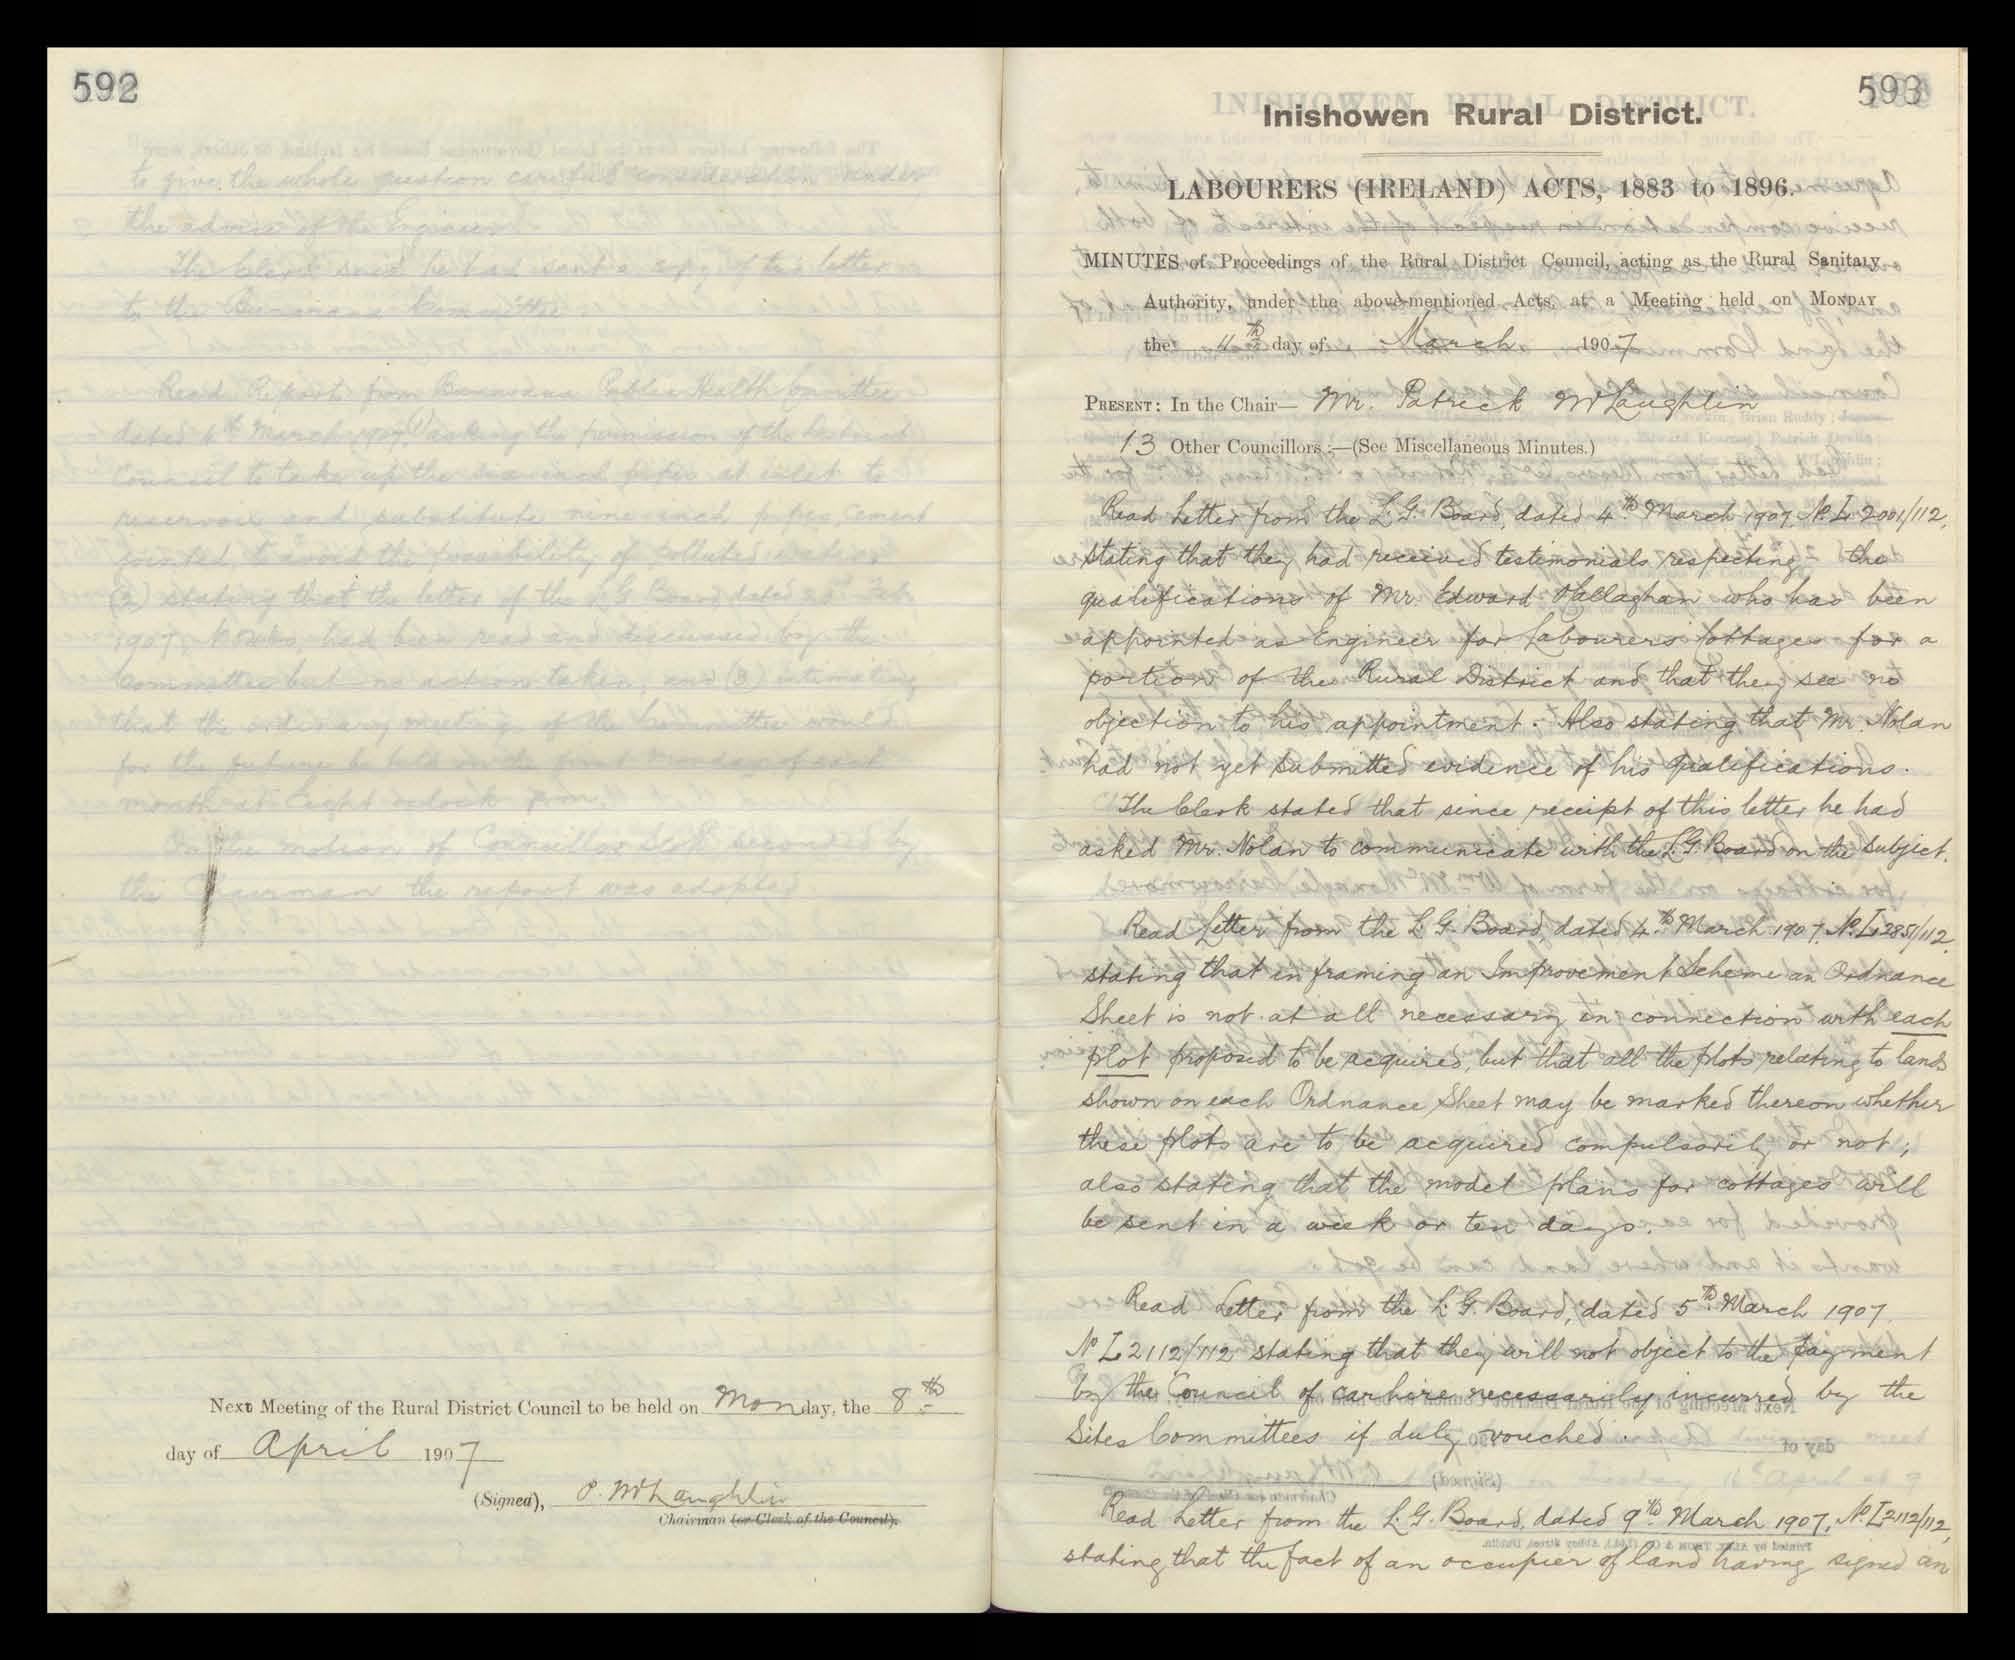 592
to give the whole question careful consideration under
the advice of the Engineer.
The Clerk said he had sent a copy of this letter
to the Buncrana Committee.
Read Report from Buncrana Public Health Committee
dated 6th March 1907, (1) asking the permission of the District
Council to take up the six inch pipes at inlet to
reservoir and substitute nine inch pipes cement
jointed to avoid the possibility of polluted water
(2) stating that the letter of the L.G. Board dated Feb
1907, had been read and discussed by the
Committee but no action taken, and (3) intimating
that the ordinary meeting of the Committee would
for the future be held on the first Monday of each
month at Eight o'clock p.m.
On the motion of Councillor seconded by
the Chairman the report was adopted.
Next Meeting of the Rural District Council to be held on Monday, the 8th
day of April 1907
(Signed), P. McLaughlin
Chairman (or Clerk of the Council).
593
Inishowen Rural District.
LABOURERS (IRELAND) ACTS, 1883 to 1896.
MINUTES of Proceedings of the Rural District Council, acting as the Rural Sanitary
Authority, under the above-mentioned Acts, at a Meeting held on MONDAY
the 11th day of March 1907
PRESENT: In the Chair— Mr. Patrick McLaughlin
13 Other Councillors:—(See Miscellaneous Minutes.)
Read Letter from the L.G. Board, dated 4th March 1907 No. L. 2001/112,
stating that they had received testimonials respecting the
qualifications of Mr. Edward O'Callaghan who has been
appointed as Engineer for Labourers' Cottages for a
portion of the Rural District and that they see no
objection to his appointment. Also stating that Mr. Nolan
had not yet submitted evidence of his qualifications.
The Clerk stated that since receipt of this letter he had
asked Mr. Nolan to communicate with the L.G. Board on the subject.
Read Letter from the L.G. Board, dated 4th March 1907, No. L. 2851/112
stating that in framing an Improvement Scheme an Ordnance
Sheet is not at all necessary in connection with each
plot proposed to be acquired, but that all the plots relating to lands
shown on each Ordnance Sheet may be marked thereon whether
these plots are to be acquired compulsorily or not;
also stating that the model plans for cottages will
be sent in a week or ten days.
Read Letter from the L.G. Board, dated 5th March 1907
No L 2112/112 stating that they will not object to the payment
by the Council of carhire necessarily incurred by the
Sites Committees if duly vouched.
Read Letter from the L.G. Board, dated 9th March 1907, No. L 2112/112,
stating that the fact of an occupier of land having signed an